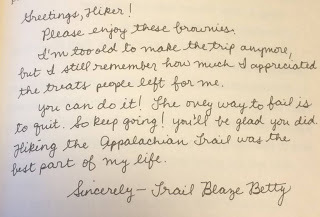 Greetings, Hiker!
Please enjoy these brownies.
I'm too old to make the trip anymore,
but I still remember how much I appreciated
the treats people left for me.
You can do it! The only way to fail is
to quit. So keep going! You'll be glad you did.
Hiking the Appalachian Trail was the
best part of my life.
Sincerely— Trail Blaze Betty